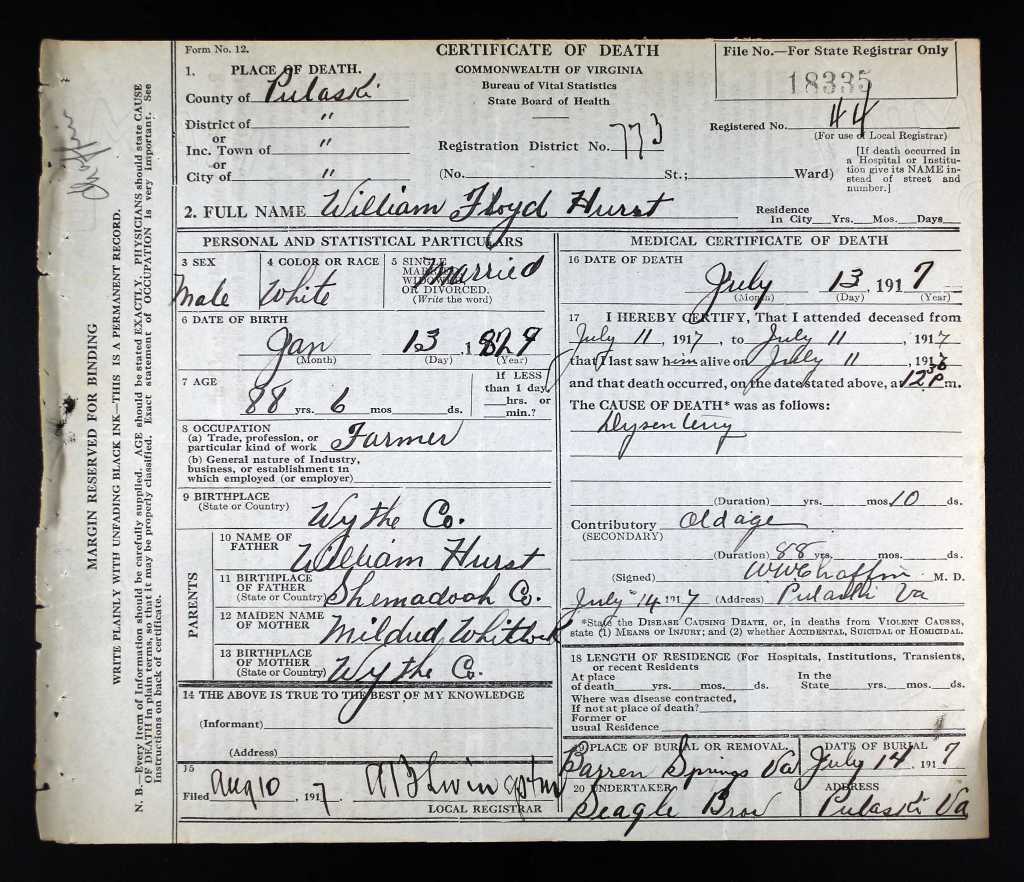 Form No. 12.
CERTIFICATE OF DEATH
COMMONWEALTH OF VIRGINIA
Bureau of Vital Statistics
State Board of Health
File No.—For State Registrar Only
18335
1. PLACE OF DEATH.
County of Pulaski
District of "
or
Inc. Town of "
or
City of "
Registration District No. 773
Registered No. 44
(For use of Local Registrar)
(No. St.; Ward)
[If death occurred in a Hospital or Institution give its NAME instead of street and number.]
2. FULL NAME William Floyd Hurst
Residence In City Yrs. Mos. Days
PERSONAL AND STATISTICAL PARTICULARS
3 SEX
Male
4 COLOR OR RACE
White
5 SINGLE MARRIED WIDOWED OR DIVORCED.
(Write the word)
Married
6 DATE OF BIRTH
Jan 13, 1829
(Month) (Day) (Year)
7 AGE
88 yrs. 6 mos ds.
If LESS than 1 day, hrs. or min.?
8 OCCUPATION
(a) Trade, profession, or particular kind of work Farmer
(b) General nature of Industry, business, or establishment in which employed (or employer)
9 BIRTHPLACE
(State or Country) Wythe Co.
PARENTS
10 NAME OF FATHER William Hurst
11 BIRTHPLACE OF FATHER
(State or Country) Shemadoah Co.
12 MAIDEN NAME OF MOTHER Mildud Whitlock
13 BIRTHPLACE OF MOTHER
(State or Country) Wythe Co.
14 THE ABOVE IS TRUE TO THE BEST OF MY KNOWLEDGE
(Informant)
(Address)
15
Filed Aug 10, 1917
LOCAL REGISTRAR
MEDICAL CERTIFICATE OF DEATH
16 DATE OF DEATH
July 13, 1917
(Month) (Day) (Year)
17 I HEREBY CERTIFY, That I attended deceased from
July 11, 1917, to July 11, 1917
that I last saw him alive on July 11, 1917
and that death occurred, on the date stated above, at 12 30 P m.
The CAUSE OF DEATH* was as follows:
Dysentery
(Duration) yrs. mos. 10 ds.
Contributory Old age
(SECONDARY)
(Duration) 88 yrs. mos. ds.
(Signed) WW Chaffin M. D.
July 14 1917 (Address) Pulaski Va
*State the DISEASE CAUSING DEATH, or, in deaths from VIOLENT CAUSES,
state (1) MEANS OF INJURY; and (2) whether ACCIDENTAL, SUICIDAL or HOMICIDAL.
18 LENGTH OF RESIDENCE (For Hospitals, Institutions, Transients, or recent Residents
At place of death yrs. mos. ds. In the State yrs. mos. ds.
Where was disease contracted,
If not at place of death?
Former or usual Residence
19 PLACE OF BURIAL OR REMOVAL.
Barren Springs Va
DATE OF BURIAL
July 14, 1917
20 UNDERTAKER
Seagle Bros
ADDRESS
Pulaski Va
Chaffin
MARGIN RESERVED FOR BINDING
WRITE PLAINLY WITH UNFADING BLACK INK—THIS IS A PERMANENT RECORD.
N. B.—Every item of Information should be carefully supplied. AGE should be stated EXACTLY. PHYSICIANS should state CAUSE
OF DEATH in plain terms, so that it may be properly classified. Exact statement of OCCUPATION is very important. See
Instructions on back of certificate.